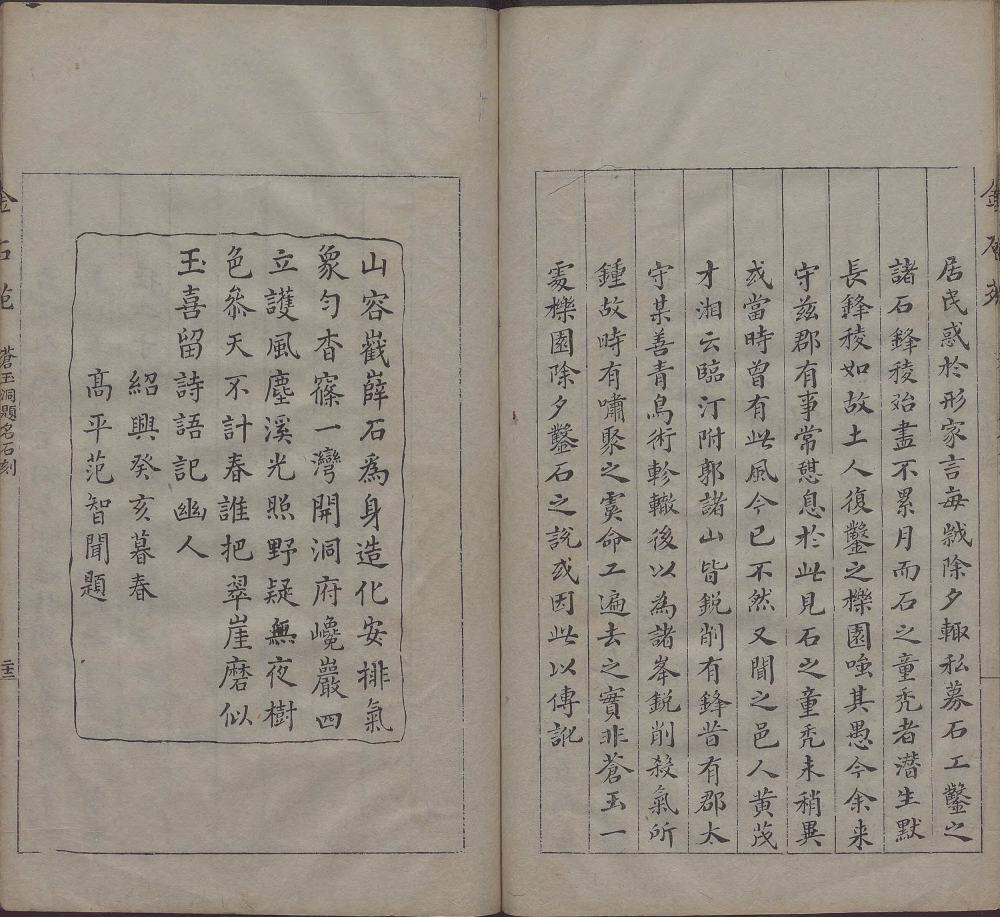 居民惑於形家言每歲除夕輒私募石工鑿之
諸石鋒稜殆盡不累月而石之童禿者潛生默
長鋒稜如故土人復鑿之櫟園嗤其愚今余来
守兹郡有事常憇息於此見石之童禿未稍異
或當時曾有此風今已不然又聞之邑人黄茂
才湘云臨汀附郭諸山皆鋭削有鋒昔有郡太
守某善青烏術軫轍後以為諸峯鋭削殺氣所
鍾故時有嘯聚之虞命工遍去之實非蒼玉一
處櫟園除夕鑿石之説或因此以傳訛
山容巀嶭石為身造化安排氣
象勻杳窱一灣開洞府巉巖四
立護風塵溪光照野疑無夜樹
色叅天不計春誰把翠崖磨似
玉喜留詩語記幽人
紹興癸亥暮春
髙平范智聞題
金石苑
蒼玉洞題名石刻